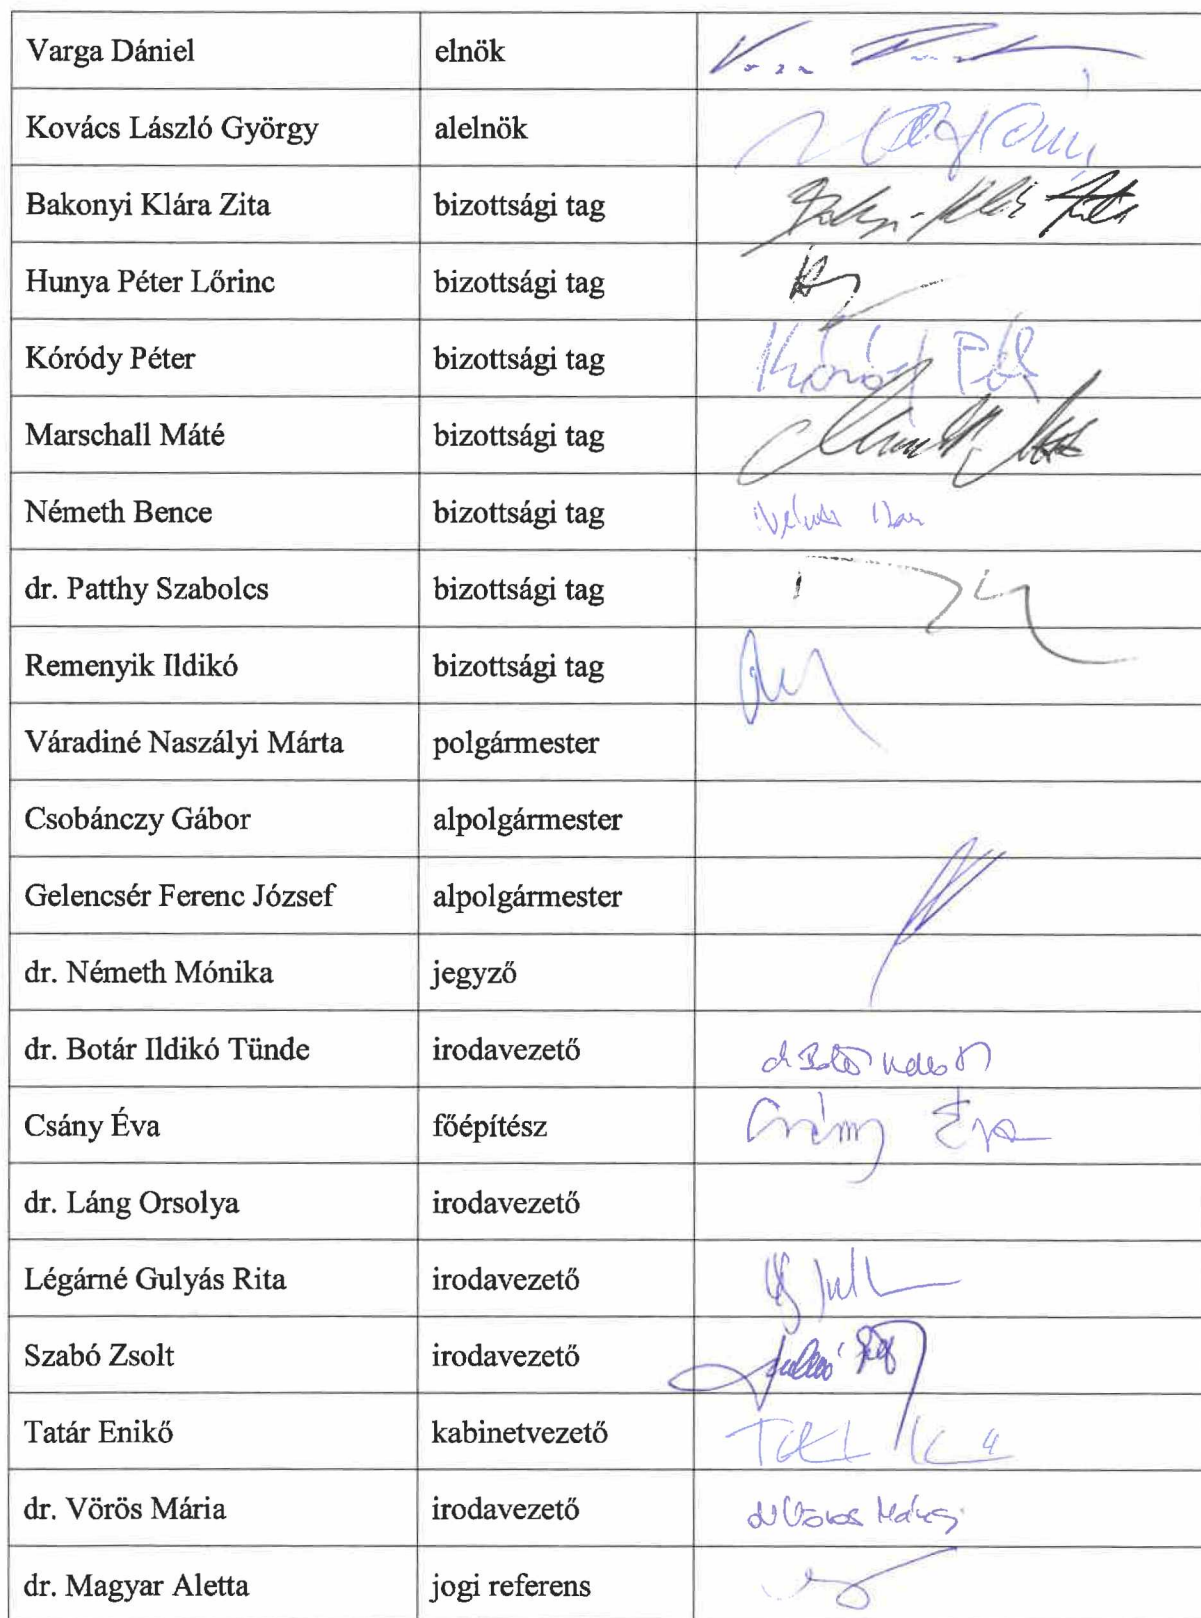 Varga Dániel elnök
Kovács László György alelnök
Bakonyi Klára Zita bizottsági tag
Hunya Péter Lőrinc bizottsági tag
Kóródy Péter bizottsági tag Kóródy Pét
Marschall Máté bizottsági tag
Németh Bence bizottsági tag
dr. Patthy Szabolcs bizottsági tag
Remenyik Ildikó bizottsági tag
Váradiné Naszályi Márta polgármester
Csobánczy Gábor alpolgármester
Gelencsér Ferenc József alpolgármester
dr. Németh Mónika jegyző
dr. Botár Ildikó Tünde irodavezető
Csány Éva főépítész Csány Éva
dr. Láng Orsolya irodavezető
Légárné Gulyás Rita irodavezető
Szabó Zsolt irodavezető
Tatár Enikő kabinetvezető
dr. Vörös Mária irodavezető
dr. Magyar Aletta jogi referens